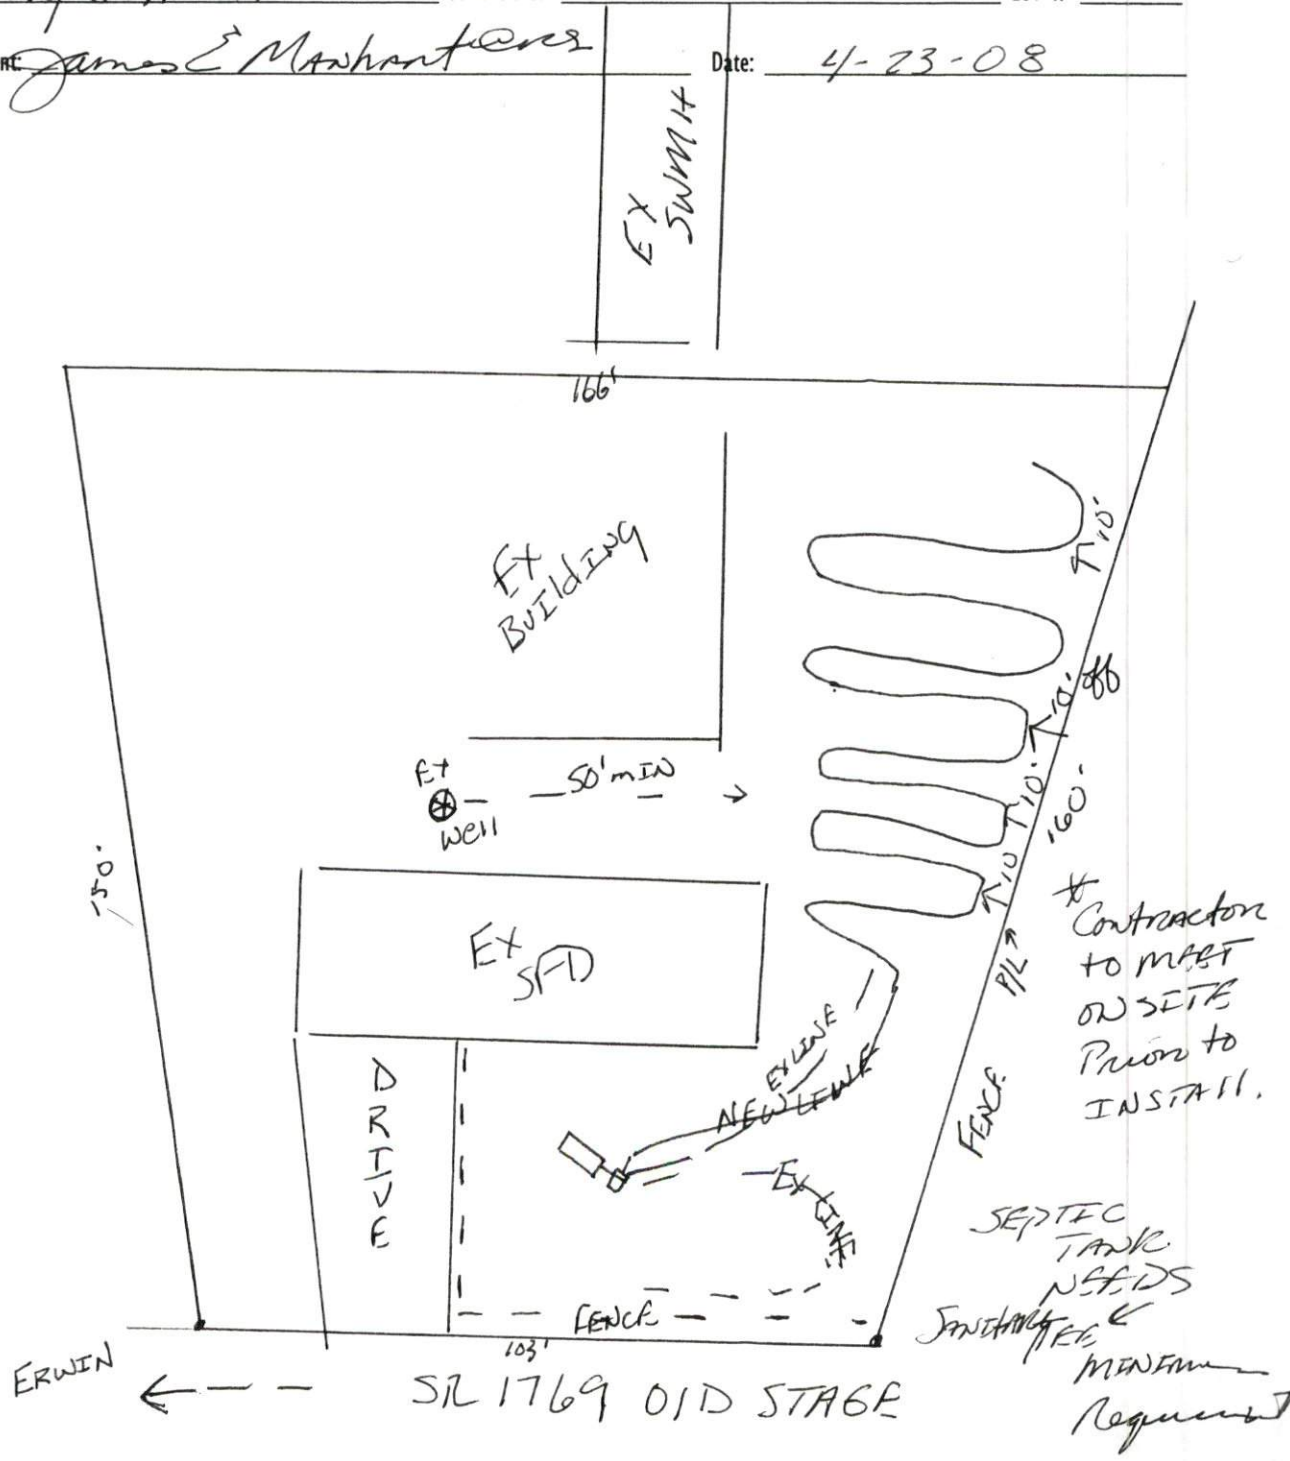 James E Manhart
Date: 4-23-08
EX
SWMH
166'
EX
BUILdING
10'
10' off
EX
50' MIN
Well
10'
160'
150'
10
EX
SFD
P/L
*
CONTRACTOR
to MEET
ON SITE
Prior to
INSTAll.
EX LINE
NEW LINE
DRIVE
FENCE
EX LINE
SEPTIC
TANK
NEEDS
SANITARY TEE
MINIMUM
Requirement
FENCE
103'
ERWIN
SR 1769 OlD STAGE